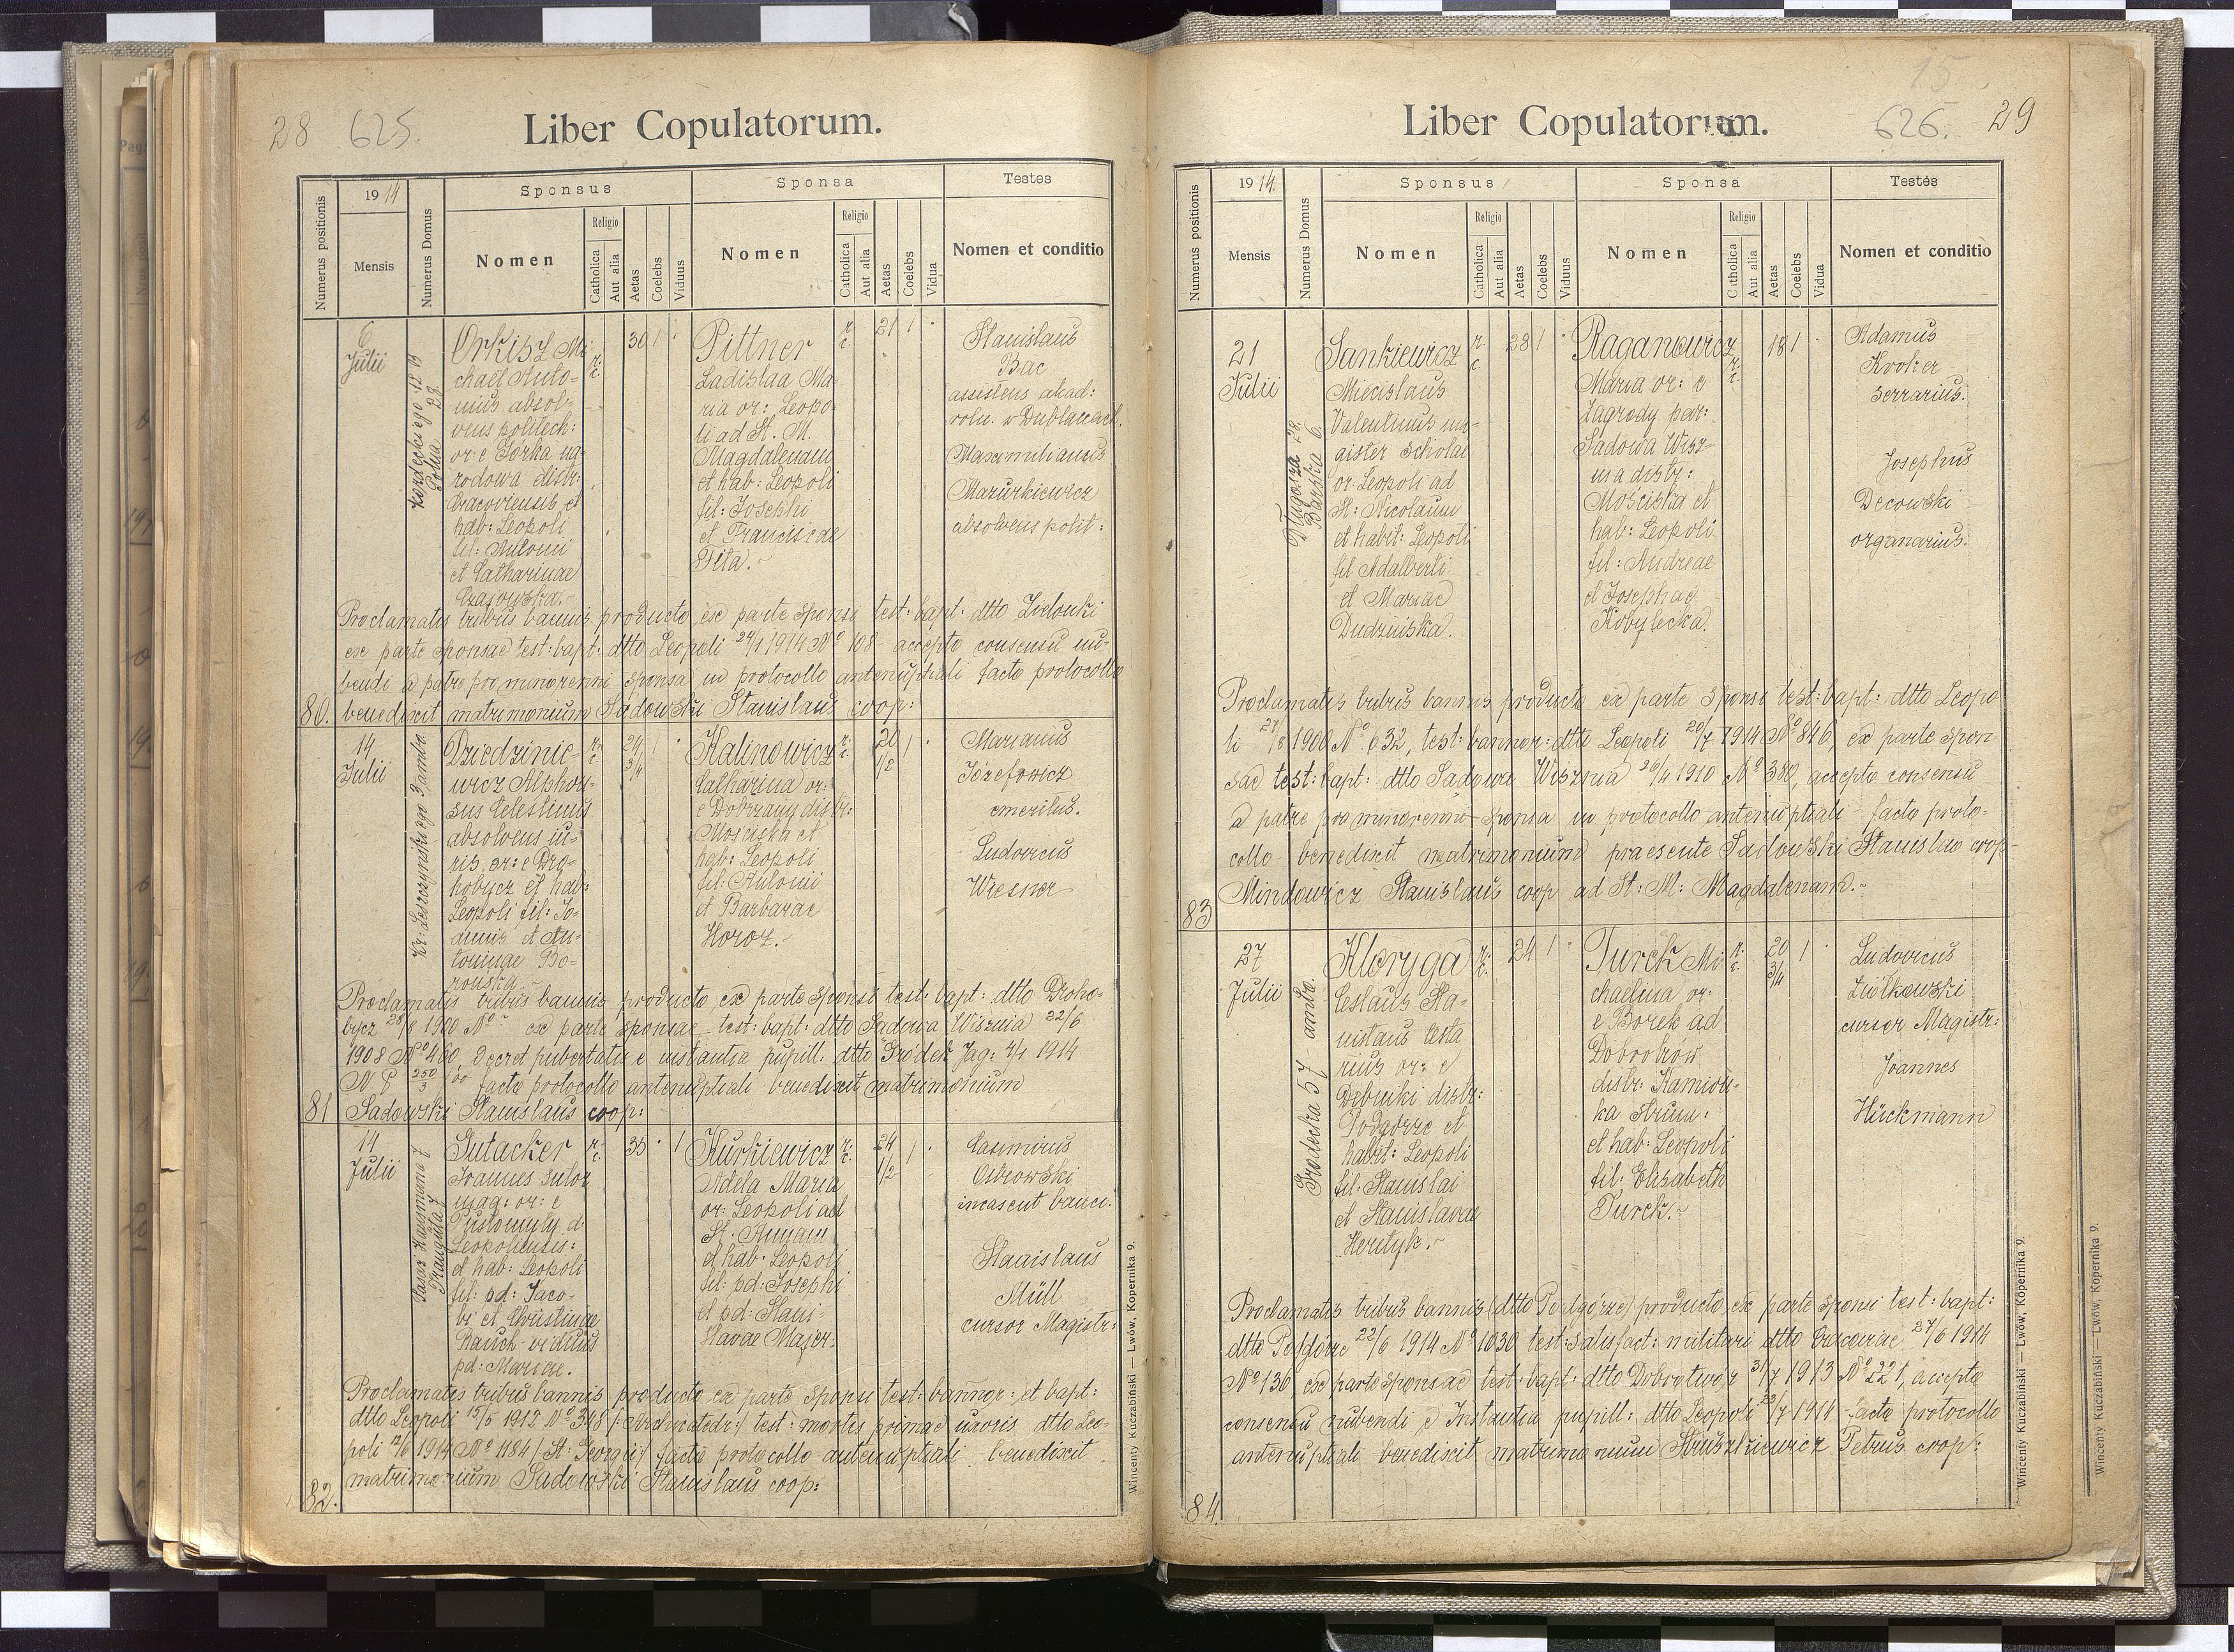 28 625.
Liber Copulatorum.
Numerus positionis
1914
Mensis
Numerus Domus
Sponsus
Nomen
Religio
Catholica
Aut alia
Aetas
Coelebs
Viduus
Sponsa
Nomen
Religio
Catholica
Aut alia
Aetas
Coelebs
Vidua
Testes
Nomen et conditio
6
Julii
Orkisz Mi-
chael Anto-
nius absol-
vens politech:
or: e Górka na-
rodowa distr:
Cracoviensis et
hab: Leopoli
fil: Antonii
et Catharinae
Czajowska.
r. c.
30 1
Pittner
Ladislaa Ma-
ria or: Leopo-
li ad St. M.
Magdalenam
et hab: Leopoli
fil: Josephi
et Franciscae
Pita.
r. c.
21 1
Stanislaus
Bac
assistens akad:
roln. w Dublanach.
Maximilianus
Mazurkiewicz
absolvens polit:
Proclamatis tribus bannis producto ex parte sponsi test: bapt. dtto Zielonki
ex parte sponsae test: bapt: dtto Leopoli 24/1 1914 No 108 accepto consensu nu-
bendi a patre pro minorenni sponsa in protocollo antenuptiali facto protocollo
80. benedixit matrimonium Sadowski Stanislaus coop:
14
Julii
Kr: Leszczyńskiego 3, ambo.
Dziedzinie-
wicz Alphon-
sus Celestinus
absolvens iu-
ris or: e Dro-
hobycz et hab:
Leopoli fil: Jo-
annis et An-
toninae Bo-
rońska.
r. c.
24 3/4 1
Kalinowicz
Catharina or:
e Dobrzany distr:
Mościska et
hab: Leopoli
fil: Antonii
et Barbarae
Horoz.
r. c.
20 1/2 1
Marianus
Józefowicz
emeritus.
Ludovicus
Wiesner
Proclamatis tribus bannis producto ex parte sponsi test: bapt: dtto Droho-
bycz 28/8 1900 No ex parte sponsae test: bapt: dtto Sadowa Wisznia 22/6
1908 No 460, Decret pubertatis e instantia pupill: dtto Gródek Jag: 4/4 1914
N P 250/3 facto protocollo antenuptiali benedixit matrimonium
81 Sadowski Stanislaus coop:
14
Julii
Pasaż Hausmana 7
Traugutta 7
Gutacker
Joannes sutor
mag: or: e
Pustomyty d.
Leopoliensis:
et hab: Leopoli
fil: pd: Jaco-
bi et Christinae
Rauch viduus
pd: Mariae.
r. c.
35 1
Kurkiewicz
Adela Maria
or: Leopoli ad
St. Annam
et hab: Leopoli
fil: pd: Josephi
et pd: Stani-
slavae Majer.
r. c.
24 1/2 1
Casimirus
Ostrowski
incascent banci.
Stanislaus
Müll
cursor Magistr:
Proclamatis tribus bannis producto ex parte sponsi test: bannor: et bapt:
dtto Leopoli 15/5 1912 No 348 test: mortis primae uxoris dtto Leo-
poli 12/6 1914 No 1184 /: St: Georgii :/ facto protocollo antenuptiali benedixit
matrimonium Sadowski Stanislaus coop:
82.
Wincenty Kuczabiński — Lwów, Kopernika 9.
15
626. 29
Liber Copulatorum.
Numerus positionis
1914.
Mensis
Numerus Domus
Sponsus
Nomen
Religio
Catholica
Aut alia
Aetas
Coelebs
Viduus
Sponsa
Nomen
Religio
Catholica
Aut alia
Aetas
Coelebs
Vidua
Testes
Nomen et conditio
21
Julii
Długosza 28.
Barska 6.
Sankiewicz
Miecislaus
Valentinus ma-
gister scholae
or: Leopoli ad
St: Nicolaum
et habit: Leopoli
fil Adalberti
et Mariae
Dudzińska.
r. c.
28 1
Raganowicz
Maria or: e
Zagrody par:
Sadowa Wisz-
nia distr:
Mościska et
hab: Leopoli
fil: Andreae
et Josephae
Kobylecka.
r. c.
18 1
Adamus
Kroker
serrarius.
Josephus
Decowski
organarius.
Proclamatis tribus bannis producto ex parte sponsi test: bapt: dtto Leopo-
li 27/8 1900 No 632, test: bannor: dtto Leopoli 20/7 1914 No 846, ex parte spon-
sae test: bapt: dtto Sadowa Wisznia 26/4 1910 No 380, accepto consensu
a patre pro minorenni sponsa in protocollo antenuptiali facto proto-
collo benedixit matrimonium praesente Sadowski Stanislao coop
83 Mindowicz Stanislaus coop ad St: M: Magdalenam.
27
Julii
Grodecka 57 ambo.
Kloryga
Ceslaus Sta-
nislaus
rius or: e
Dębniki distr:
Podgórze et
habit: Leopoli
fil: Stanislai
et Stanislavae
Herityk.
r. c.
24 1
Turek Mi-
chaelina or:
e Borek ad
Dobrotwór
distr: Kamion-
ka strum:
et hab: Leopoli
fil: Elisabeth
Turek.
r. c.
20 3/4 1
Ludovicus
Ziółkowski
cursor Magistr:
Joannes
Hückmann
Proclamatis tribus bannis (dtto Podgórze) producto ex parte sponsi test: bapt:
dtto Podgórze 22/6 1914 No 1030 test: satisfact: militari dtto Cracoviae 27/6 1914
No 136 ex parte sponsae test: bapt: dtto Dobrotwór 31/7 1913 No 221, accepto
consensu nubendi e Instantia pupill: dtto Leopoli 23/7 1914 facto protocollo
antenuptiali benedixit matrimonium Struszkiewicz Petrus coop:
84.
Wincenty Kuczabiński — Lwów, Kopernika 9.
Wincenty Kuczabiński — Lwów, Kopernika 9.